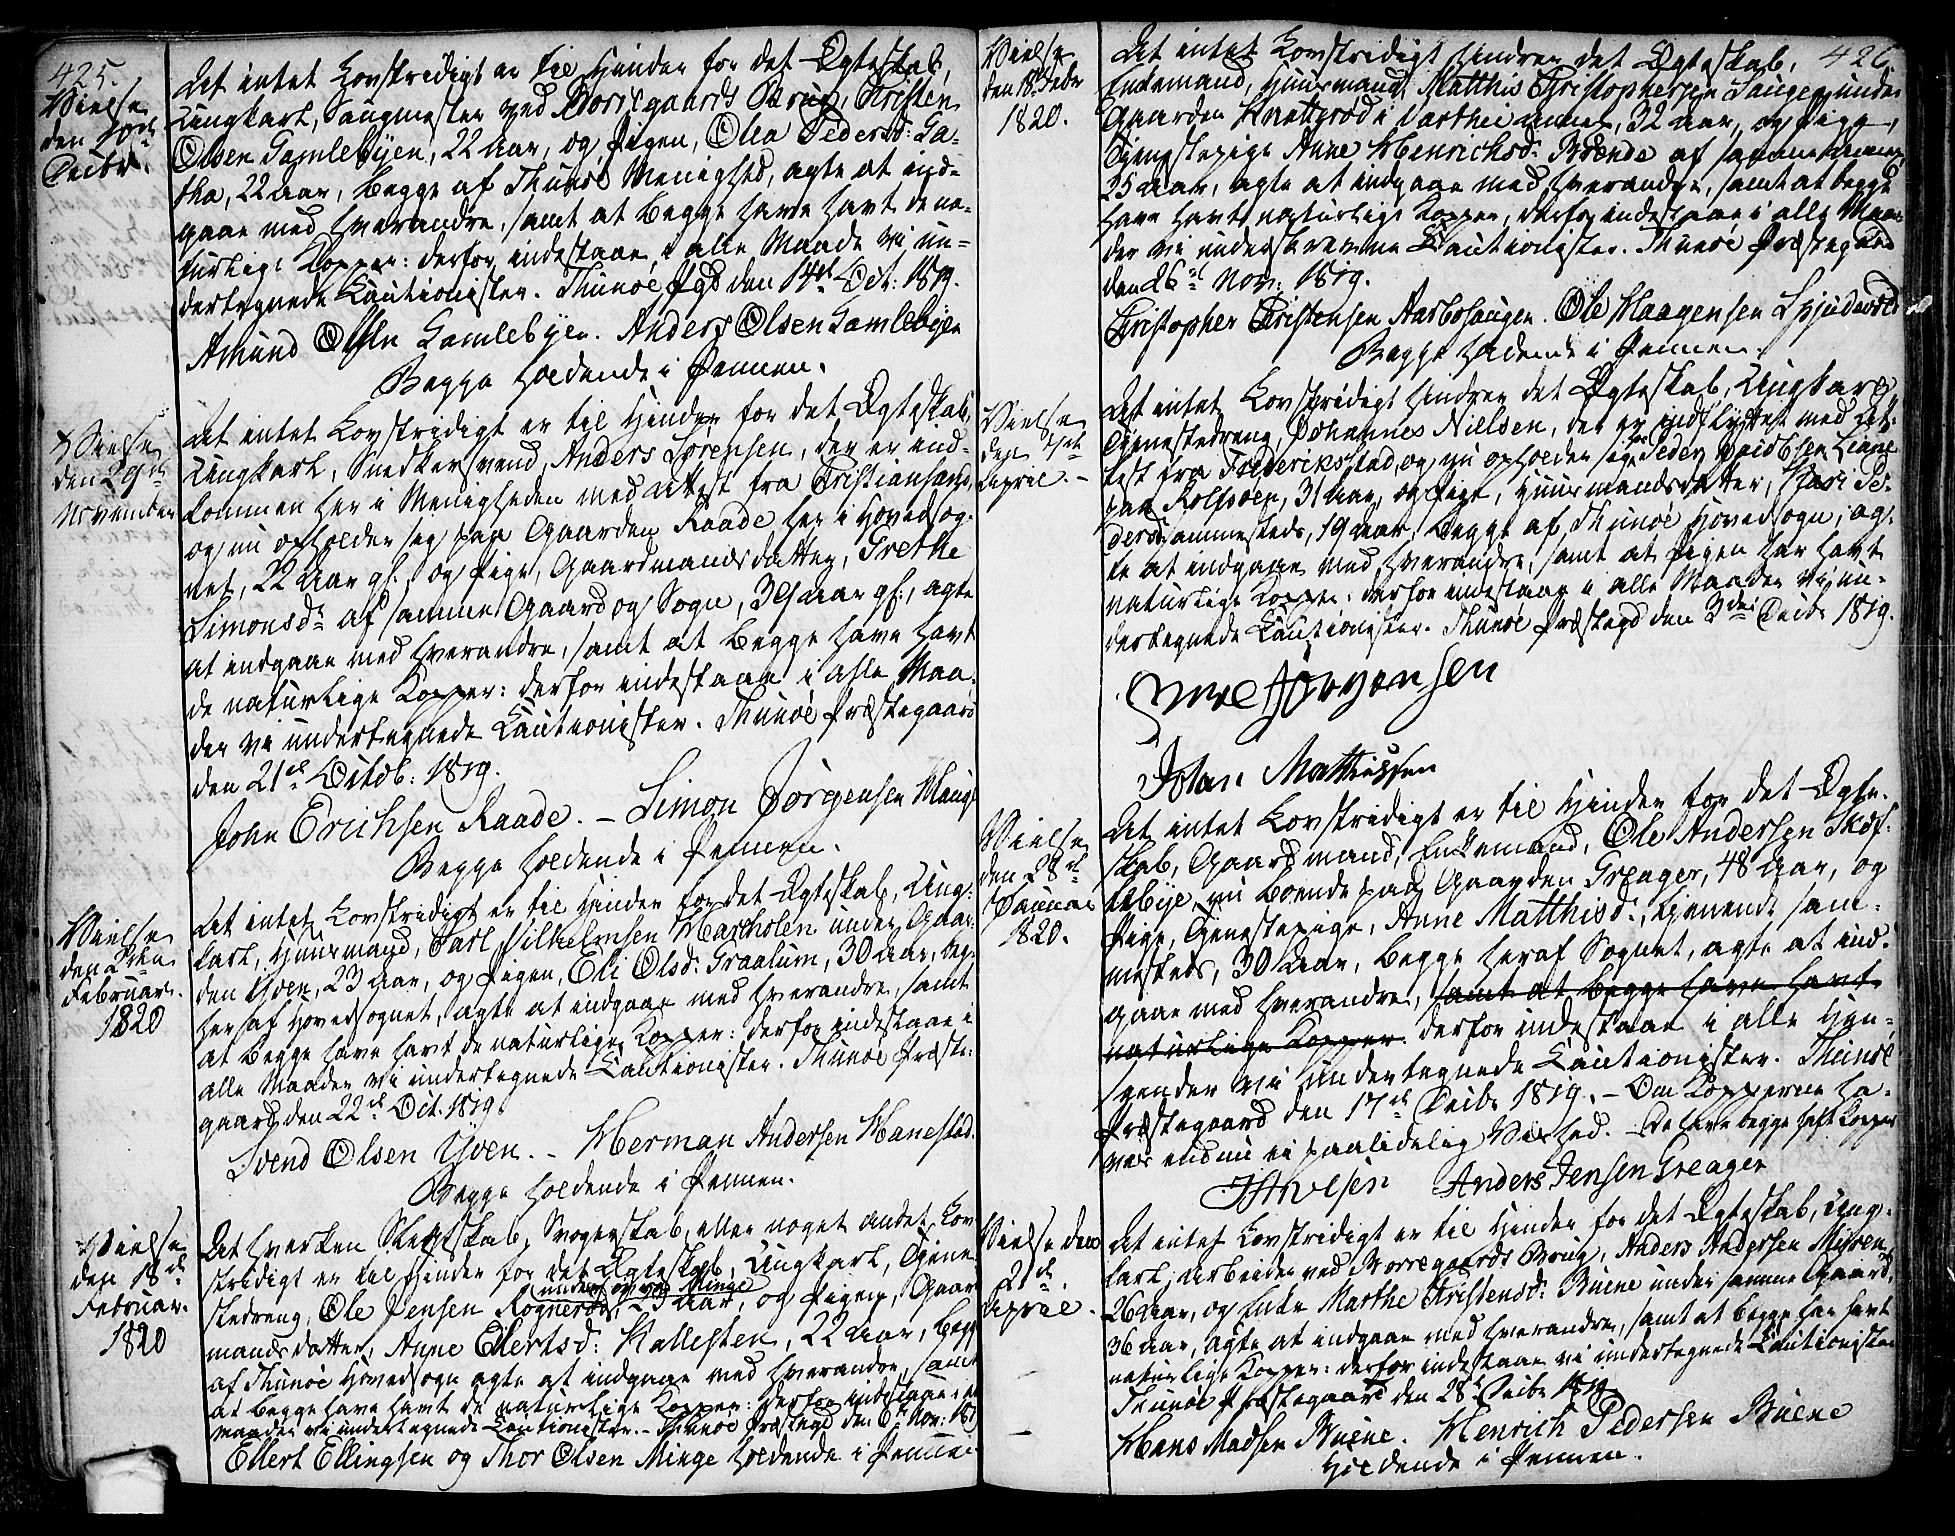 425.
Vielse
den
Decbr.
At intet Lovstridigt er til Hinder for det Ægteskab,
Ungkarl, Saugmester ved Borregaards Brug, Christen
Olsen Gamlebyen, 22 Aar, og Pigen, Olea Pedersd: Ga-
tha, 22 Aar, begge af Thunøe Menighed, agte at ind-
gaae med hverandre, samt at begge have havt de na-
turlige Kopper: derfor indestaae i alle Maade vi un-
dertegnede Cautionister. Thunøe Pgd den 14de Oct: 1819.
Amund Olsen Gamlebyen. Anders Olsen Gamlebyen
Begge holdende i Pennen.
Vielse
den 29de
November
At intet Lovstridigt er til Hinder for det Ægteskab,
Ungkarl, Snedkersvend, Anders Sørensen, der er ind-
kommen her i Menigheden med Attest fra Christiansand,
og nu opholder sig paa Gaarden Raade her i Hovedsog-
net, 22 Aar gl., og Pige, Gaardmandsdatter, Grethe
Simonsdr af samme Gaard og Sogn, 39 Aar gl., agte
at indgaae med hverandre, samt at begge have havt
de naturlige Kopper: derfor indestaae i alle Maa-
der vi undertegnede Cautionister. Thunøe Præstegaard
den 21de Octob: 1819.
John Erichsen Raade. – Simon Jørgensen Hauge
Begge holdende i Pennen.
Vielse
den 2den
Februar.
1820
At intet Lovstridigt er til Hinder for det Ægteskab, Ung-
karl, Huusmand, Carl Vilhelmsen Hartholen under Gaar-
den Yven, 23 Aar, og Pigen, Eli Olsd: Graalum, 30 Aar, beg-
her af Hovedsognet, agte at indgaae med hverandre, samt
at begge have havt de naturlige Kopper: derfor indestaae i
alle Maader vi undertegnede Cautionister. Thunøe Præste-
gaard den 22de Oct. 1819.
Svend Olsen Yven. – Herman Andersen Hanestad.
Begge holdende i Pennen.
Vielse
den 18de
Februar.
1820
At hverken Slegtskab, Svogerskab, eller noget andet Lov-
stridigt er til Hinder for det Ægteskab, Ungkarl, Tiene-
under Minge
stedreng, Ole Jensen Rognerød, 23 Aar, og Pigen, Gaar
mandsdatter, Anne Ellertsd: Hallesten, 22 Aar, begge
af Thunøe Hovedsogn agte at indgaae med hverandre, samt
at begge have havt de naturlige Kopper: derfor indestaae i alle
maader vi undertegnede Cautionister. – Thunøe Præstegd den 6te Nov: 1819
Ellert Ellingsen og Thor Olsen Minge holdende i Pennen
426.
Vielse
den 18de Febr
1820.
At intet Lovstridigt hindrer det Ægteskab,
Enkemand, Huusmand Matthis Christophersen Haugen under
Gaarden Knatterød i Varteig Annex, 32 Aar, og Pige,
Tienestepige Anne Henrichsd: Brende af samme Annex,
35 Aar, agte at indgaae med hverandre, samt at begge
have havt naturlige Kopper, derfor indestaae i alle Maa-
der vi underskrevne Cautionister. Thunøe Præstegaard
den 26de Nov: 1819.
Christopher Christensen Aarbohaugen. Ole Haagensen Spydevold
Begge holdende i Pennen.
Vielse
den
April. –
At intet Lovstridigt hindrer det Ægteskab, Ungkarl
Tienestedreng, Johannes Nielsen, der er indflyttet med At-
test fra Frederikstad, og nu opholder sig hos Peder Liane
paa Rolfsøen, 31 Aar, og Pige, Huusmandsdatter, Kari Pe-
dersd sammesteds, 19 Aar, begge af Thunøe Hovedsogn, ag-
te at indgaae med hverandre, samt at Pigen har havt
naturlige Kopper: derfor indestaae i alle Maader vi un-
dertegnede Cautionister. Thunøe Præstegd den 3die Decbr 1819.
Jørgensen
Johan Mathiessen
Vielse
den 28de
Januar
1820.
At intet Lovstridigt er til Hinder for det Ægte-
skab, Gaardmand, Enkemand, Ole Andersen
nu boende paa Gaarden Greager, 48 Aar, og
Pige, Tienestepige, Anne Matthisd:, tienende sam-
mesteds, 30 Aar, begge her af Sognet, agte at ind-
gaae med hverandre, samt at begge have havt
naturlige Kopper: derfor indestaae i alle Hen-
seender vi undertegnede Cautionister. Thunøe
Præstegaard den 17de Decbr 1819. – Om Kopperne ha-
ves endnu ei paalidelig Vished. – De have begge havt Kopper
Anders Jensen Greager
Vielse den
2de
April.
At intet Lovstridigt er til Hinder for det Ægteskab, Ung-
karl, Arbeider ved Borregaards Brug, Anders Andersen
26 Aar, og Enke Marthe Christensd: Buene under samme Gaard,
36 Aar, agte at indgaae med hverandre, samt at begge har havt
naturlige Kopper: derfor indestaae vi undertegnede Cautionister
Thunøe Præstegaard den 28de Decbr 1819.
Hans Madsen Buene. Henrich Pedersen Buene
Holdende i Pennen.